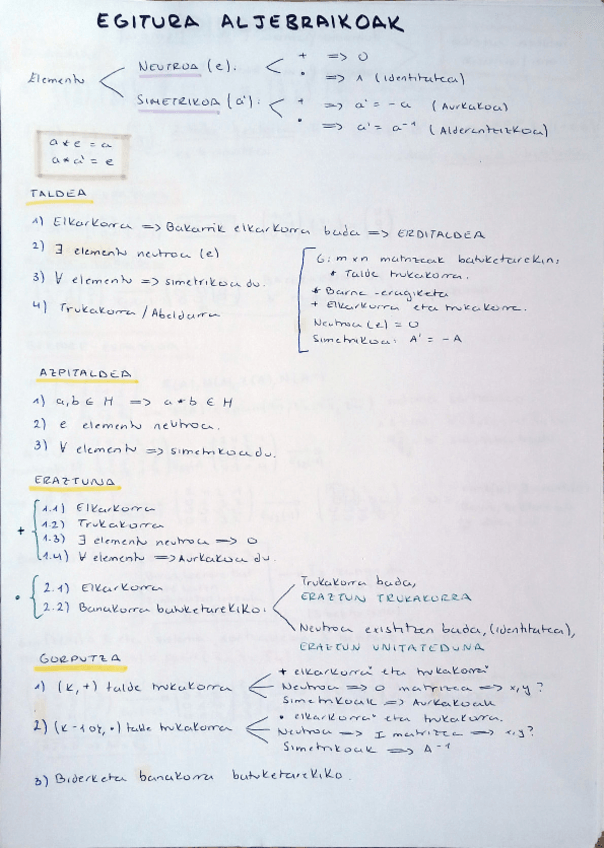 EGITURA ALJEBRAIKOAK
Elementu
NEUTROA (e): + => 0
• => 1 (identitatea)
SIMETRIKOA (a'): + => a' = -a (Aurkakoa)
• => a' = a⁻¹ (Alderantzizkoa)
a * e = a
a * a' = e
TALDEA
1) Elkarkorra => Bakarrik elkarkorra bada => ERDITALDEA
2) ∃ elementu neutroa (e)
3) ∀ elementu => simetrikoa du.
4) Trukakorra / Abeldarra
G: m x n matrizeak batuketarekin:
* Talde trukakorra.
* Barne-eragiketa
+ Elkarkorra eta trukakorra.
Neutroa (e) = 0
Simetrikoa: A' = -A
AZPITALDEA
1) a, b ∈ H => a * b ∈ H
2) e elementu neutroa.
3) ∀ elementu => simetrikoa du.
ERAZTUNA
+
1.1) Elkarkorra
1.2) Trukakorra
1.3) ∃ elementu neutroa => 0
1.4) ∀ elementu => Aurkakoa du.
•
2.1) Elkarkorra
2.2) Banakorra batuketarekiko:
Trukakorra bada,
ERAZTUN TRUKAKORRA
Neutroa existitzen bada, (identitatea),
ERAZTUN UNITATEDUNA
GORPUTZA
1) (K, +) talde trukakorra
+ elkarkorra eta trukakorra
Neutroa => 0 matrizea => x, y?
Simetrikoak => Aurkakoak
2) (K - {0}, •) talde trukakorra
• elkarkorra eta trukakorra.
Neutroa => I matrizea => x, y?
Simetrikoak => A⁻¹
3) Biderketa banakorra batuketarekiko.